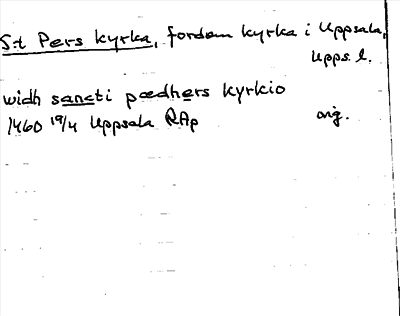 St Pers kyrka, fordom kyrka i Uppsala,
Upps. l.
widh sancti pædhers kyrkio
1460 19/4 Uppsala RAp orig.